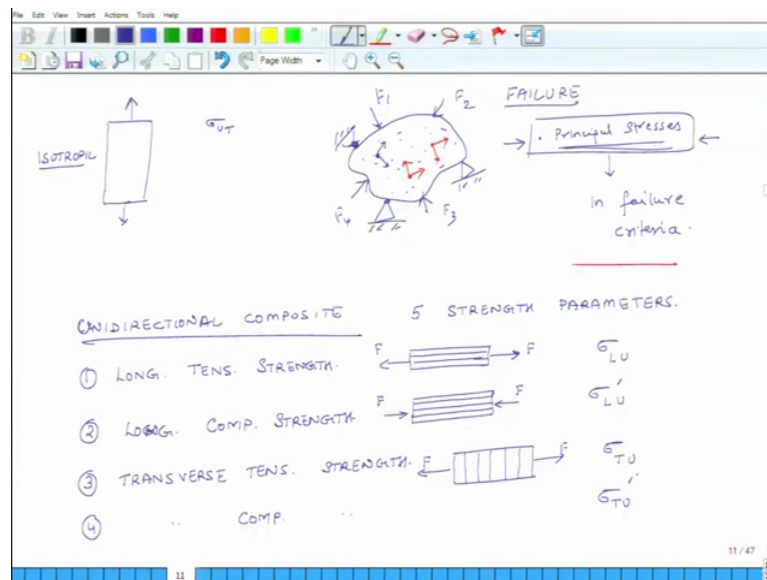 File Edit View Insert Actions Tools Help
B I
Page Width
FAILURE
F1
F2
σUT
· Principal Stresses
ISOTROPIC
In failure
criteria.
F4
F3
UNIDIRECTIONAL COMPOSITE 5 STRENGTH PARAMETERS.
① LONG. TENS. STRENGTH. F F σLU
② LONG. COMP. STRENGTH F F σLU'
③ TRANSVERSE TENS. STRENGTH. F F σTU
④ " COMP. " σTU'
11 / 47
11